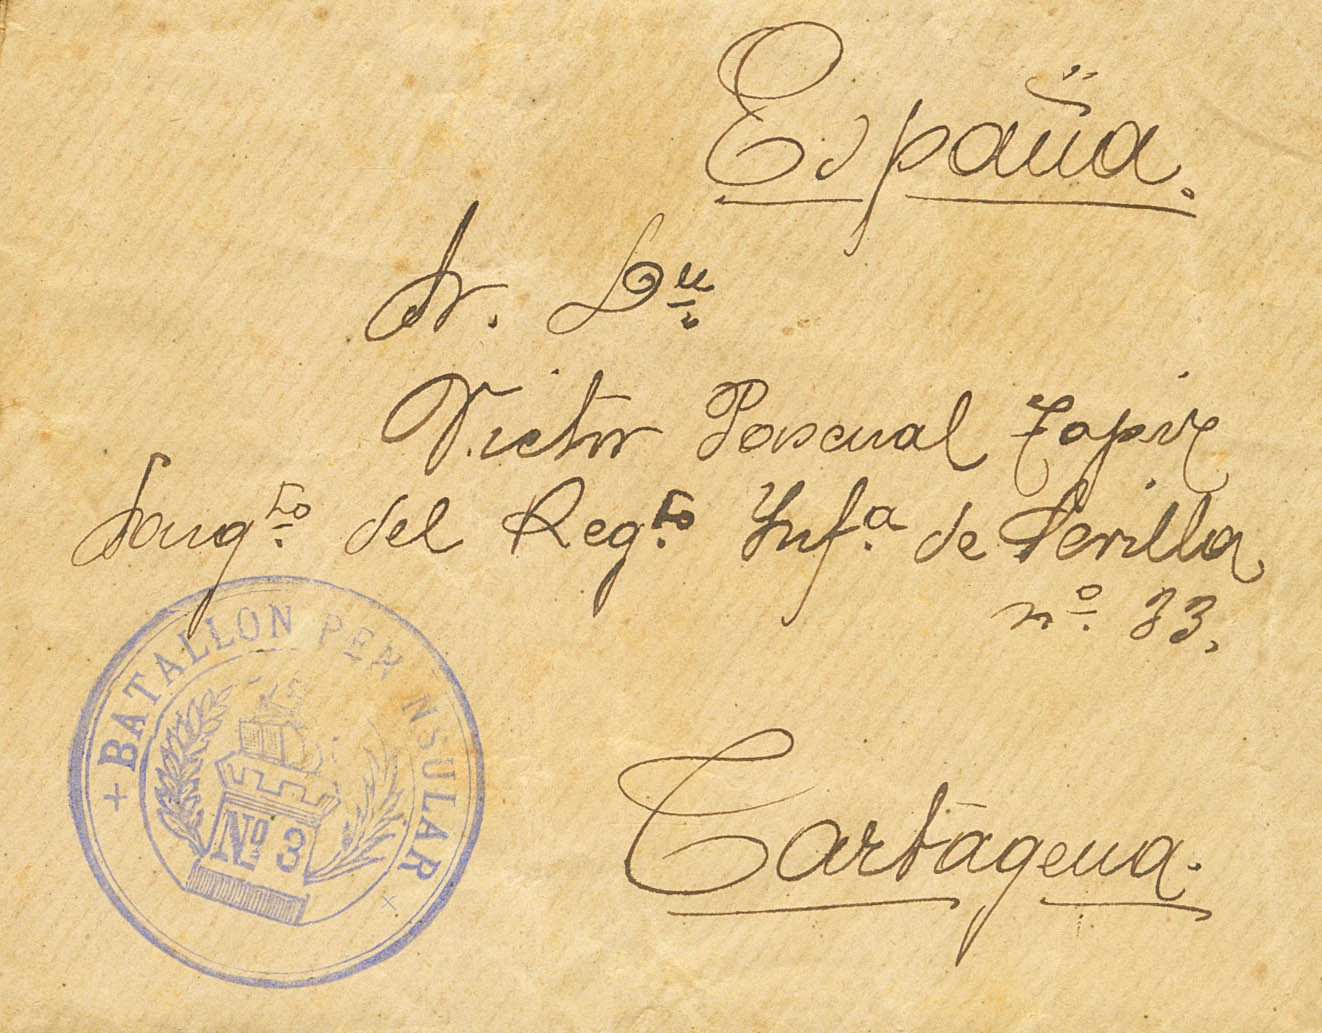 España.
Sr. Dn.
Victor Pascual Tapia
Sargto. del Regto. Infa. de Sevilla
nº. 33.
Cartagena.
+ BATALLON PENINSULAR +
Nº 3